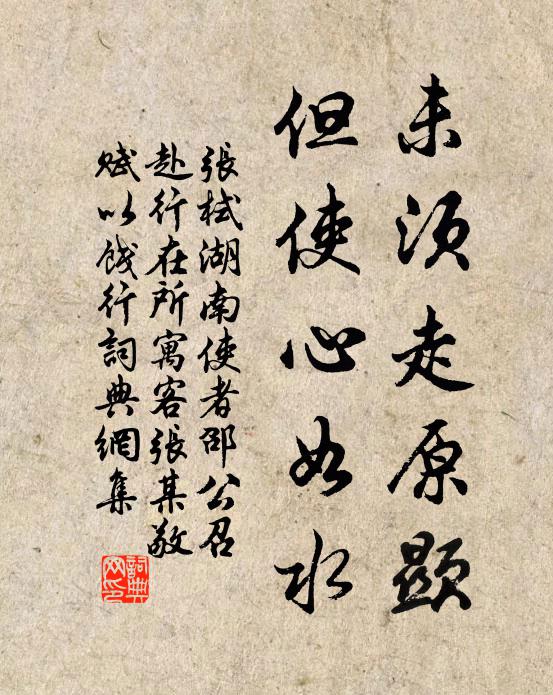 未須走原顯
但使心如水
張栻湖南使者邵公召
赴行在所寓客張某敬
賦以餞行詞典網集
詞典
网印